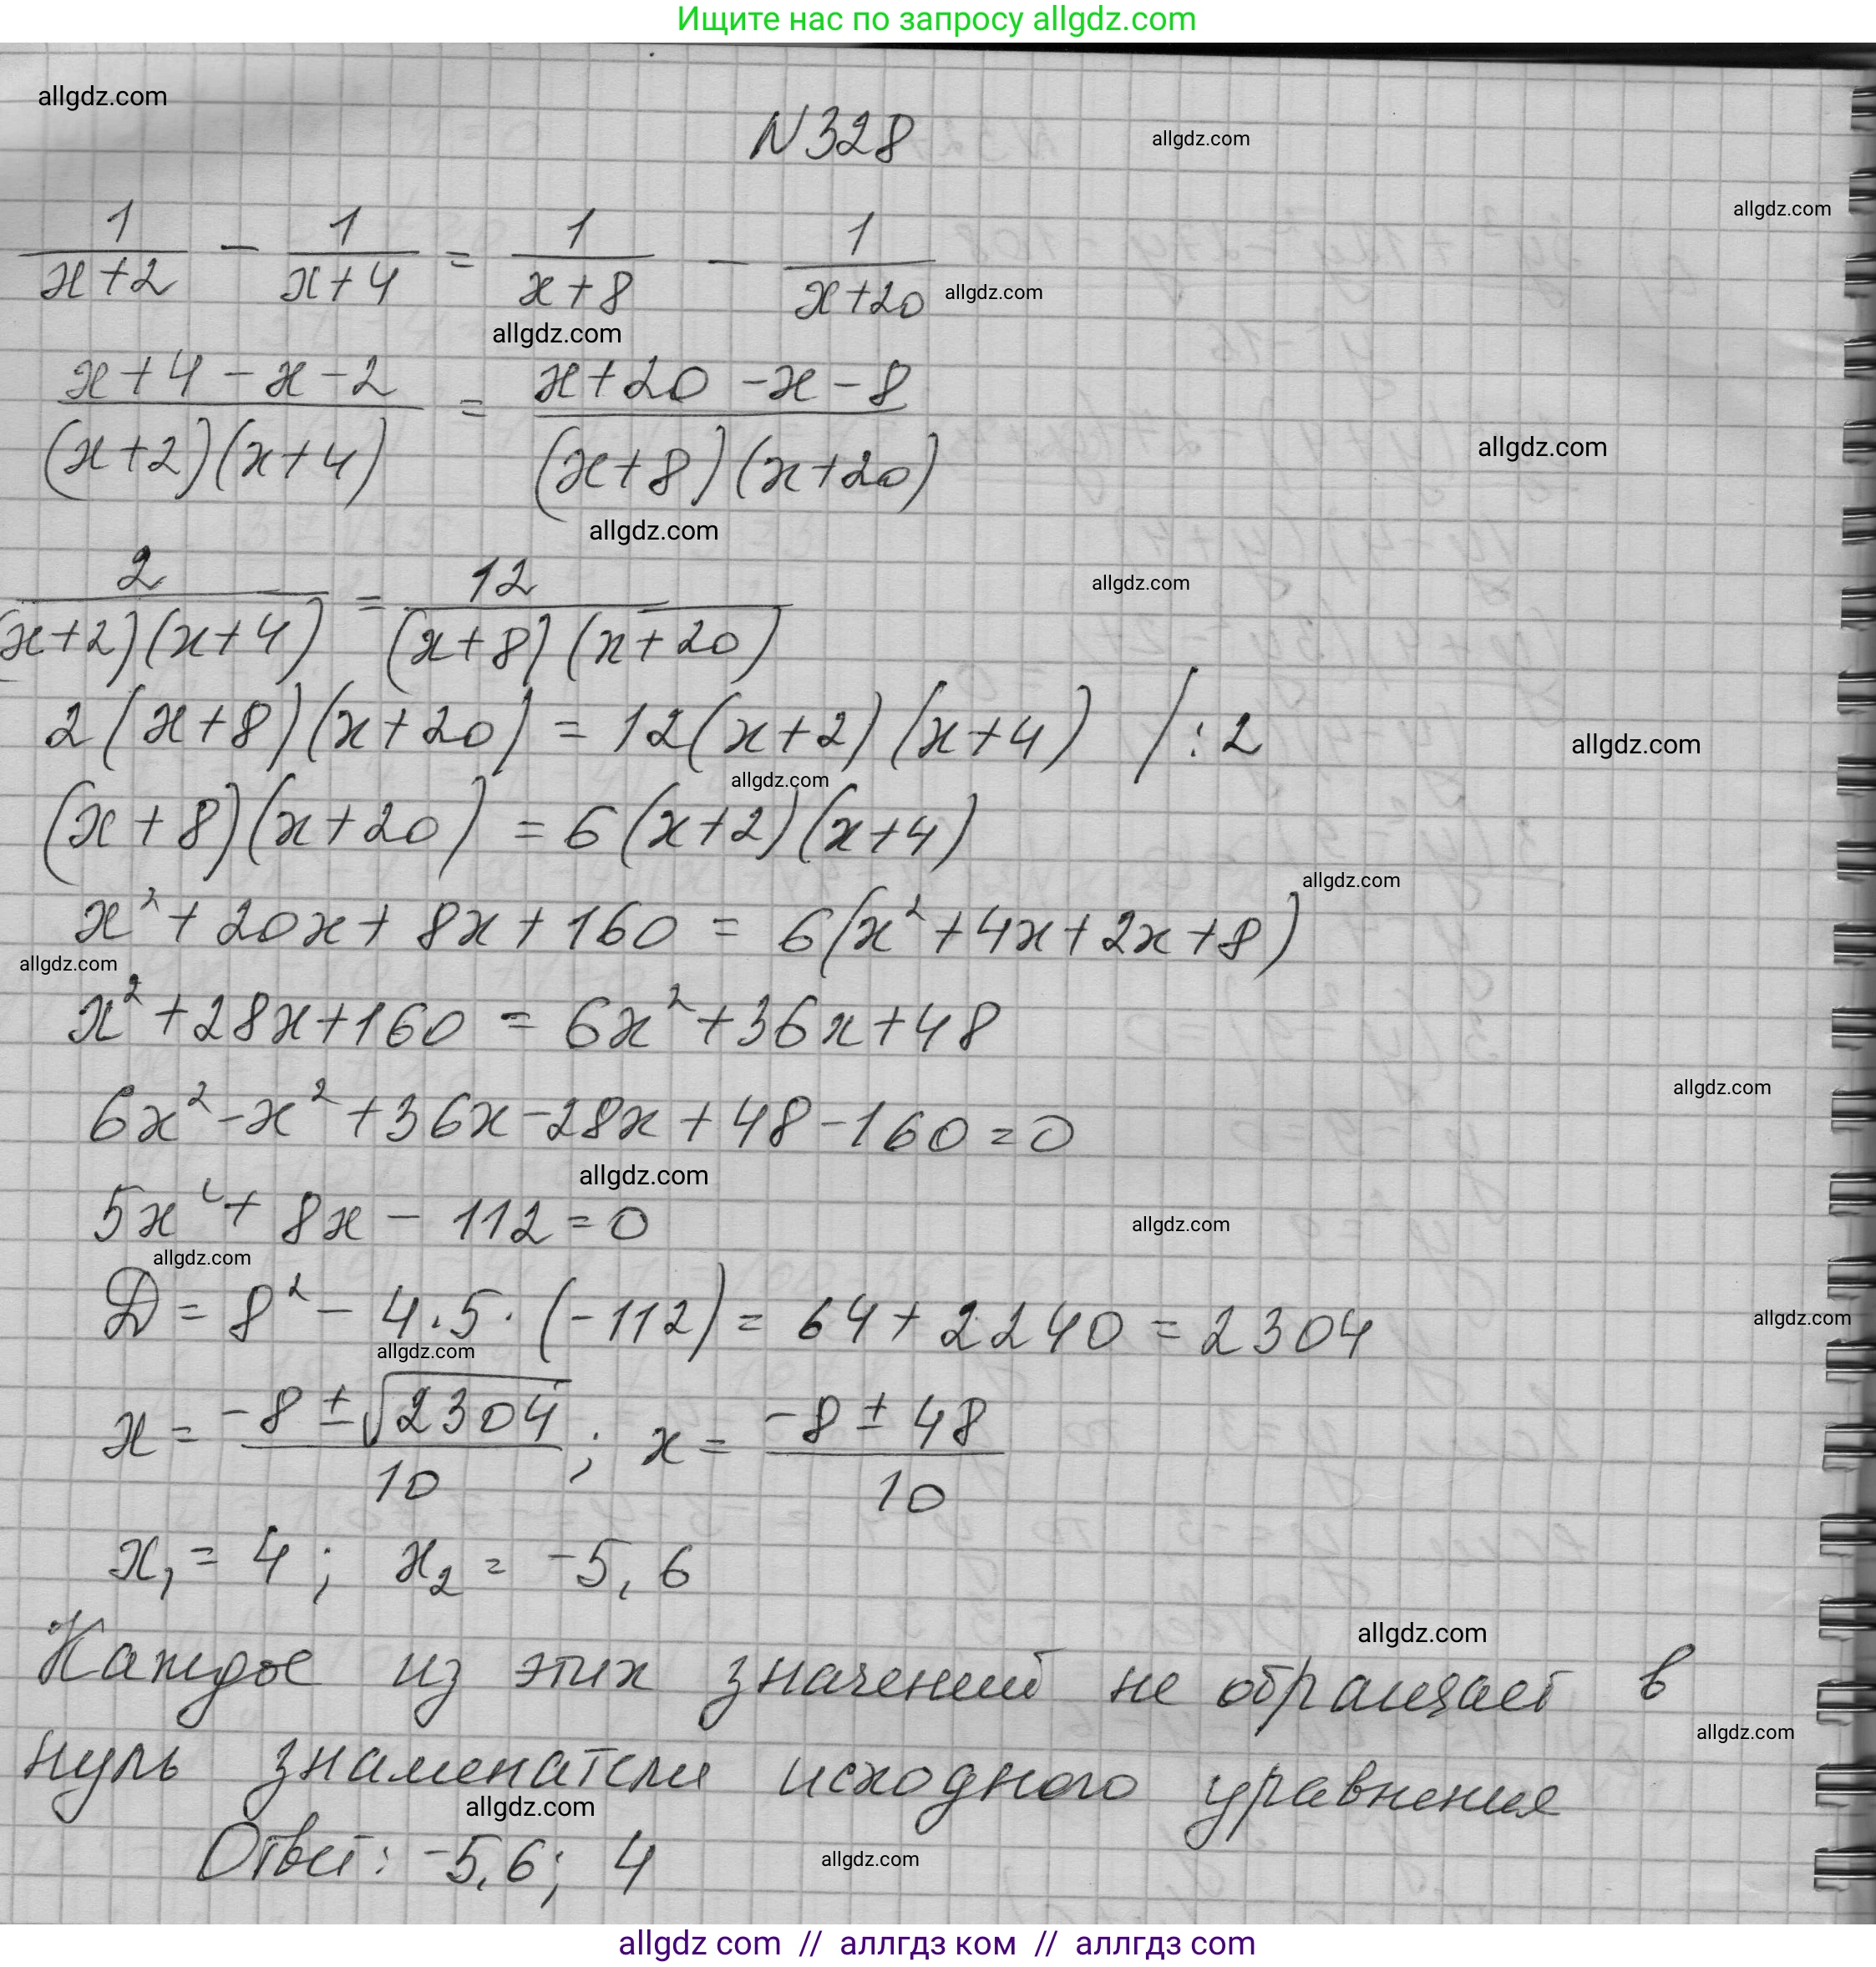 Ищите нас по запросу allgdz.com
allgdz.com
N328
allgdz.com
allgdz.com
1/(x+2) - 1/(x+4) = 1/(x+8) - 1/(x+20)
allgdz.com
allgdz.com
(x+4-x-2)/((x+2)(x+4)) = (x+20-x-8)/((x+8)(x+20))
allgdz.com
allgdz.com
2/((x+2)(x+4)) = 12/((x+8)(x+20))
allgdz.com
2(x+8)(x+20) = 12(x+2)(x+4) /:2
allgdz.com
allgdz.com
(x+8)(x+20) = 6(x+2)(x+4)
allgdz.com
x² + 20x + 8x + 160 = 6(x² + 4x + 2x + 8)
allgdz.com
x² + 28x + 160 = 6x² + 36x + 48
allgdz.com
6x² - x² + 36x - 28x + 48 - 160 = 0
allgdz.com
5x² + 8x - 112 = 0
allgdz.com
allgdz.com
D = 8² - 4·5·(-112) = 64 + 2240 = 2304
allgdz.com
allgdz.com
x = (-8 ± √2304)/10 ; x = (-8 ± 48)/10
x₁ = 4 ; x₂ = -5,6
allgdz.com
Каждое из этих значений не обращает в
allgdz.com
нуль знаменатели исходного уравнения
allgdz.com
Ответ: -5,6; 4
allgdz.com
allgdz com // аллгдз ком // аллгдз com